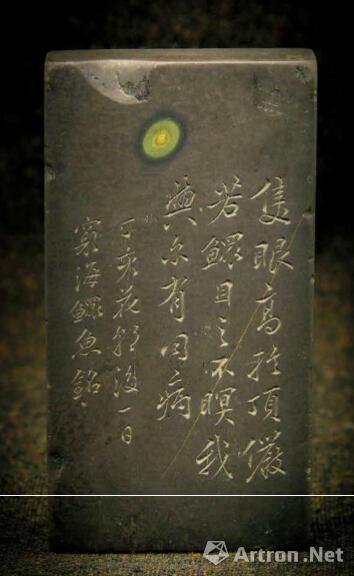 隻眼高於頂儼
若鰥目之不瞑我
與尓有同病
丁亥花朝後一日
窮海鰥魚銘
Artron.Net